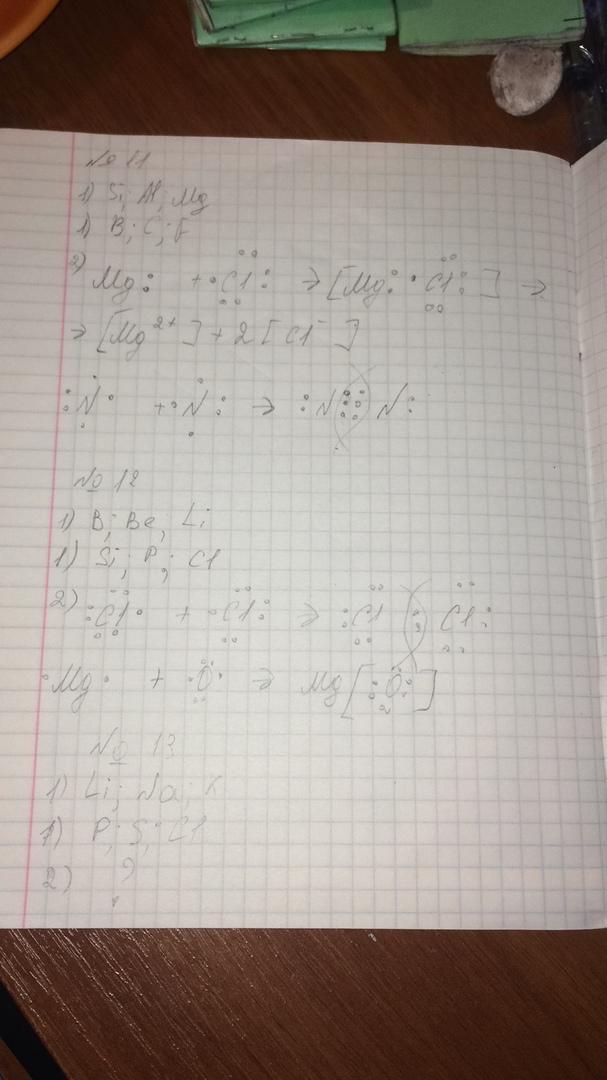 № 11
1) Si; Al; Mg
1) B; C; F
2) Mg: + ·Cl: → [Mg: · Cl:] →
→ [Mg²⁺] + 2 [Cl⁻]
:N· + ·N: → :N ⫶⫶ N:
№ 12
1) B; Be; Li
1) Si; P; Cl
2) :Cl· + ·Cl: → :Cl : Cl:
·Mg· + ·O· → Mg[:O:]
№ 13
1) Li; Na; K
1) P; S; Cl
2) ?